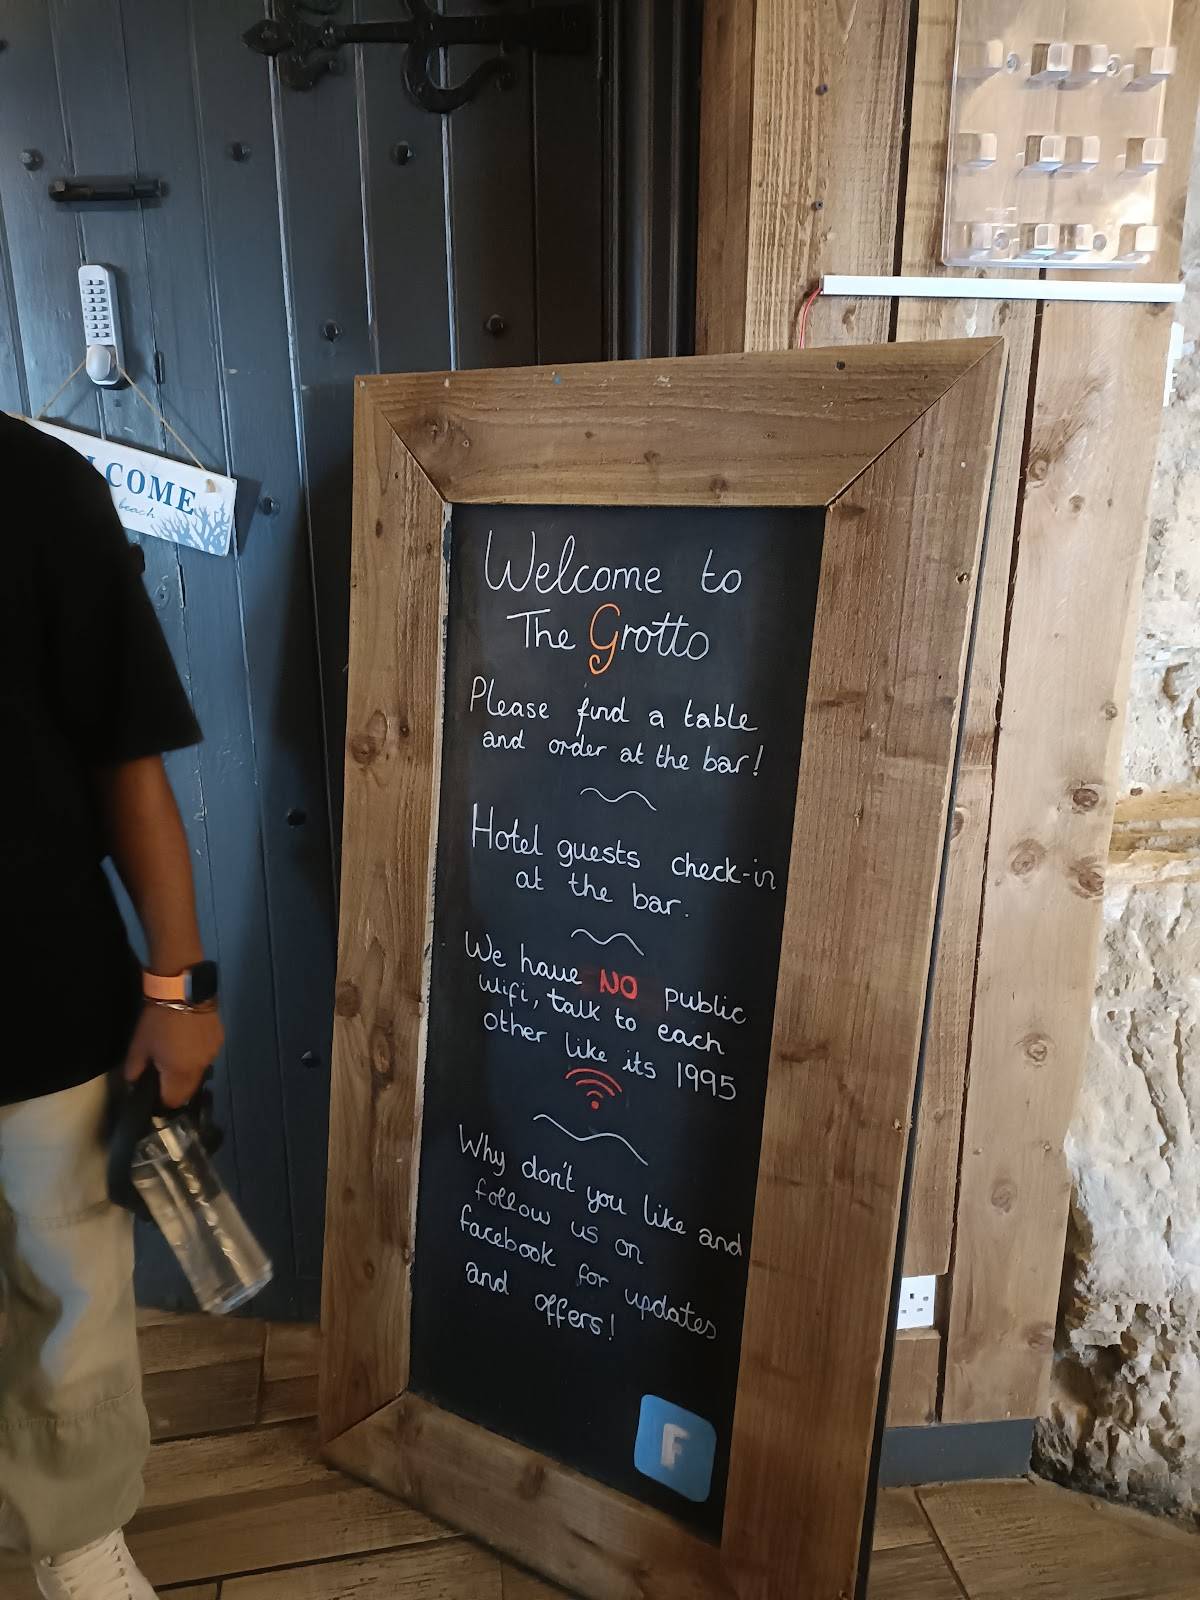 COME
beach
Welcome to
The Grotto
Please find a table
and order at the bar!
Hotel guests check-in
at the bar.
We have NO public
wifi, talk to each
other like its 1995
Why don't you like and
follow us on
facebook for updates
and offers!
F